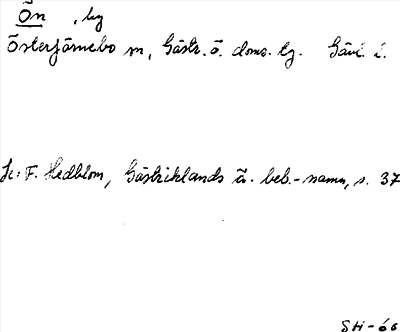 Ön , by
Österfärnebo sn, Gästr. ö. doms. lg. Gävl. l.
Se: F. Hedblom, Gästriklands ä. beb.-namn, s. 37
SH-66